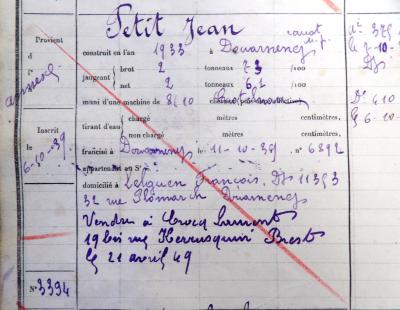 Petit Jean canot
Provient
d
construit en l'an 1933 à Douarnenez
jaugeant brut 2 tonneaux 73 /100
net 2 tonneaux 62 /100
muni d'une machine de 8/10
tirant d'eau chargé mètres centimètres,
non chargé mètres centimètres,
Inscrit
le
6-10-39
francisé à Douarnenez le 11-10-39 n° 6892
appartenant au Sr
domicilié à François, Dz 11353
32 rue Plomarch Douarnenez
Vendu à Crocq Laurent
19 bis rue Brest
le 21 avril 49
N° 3394